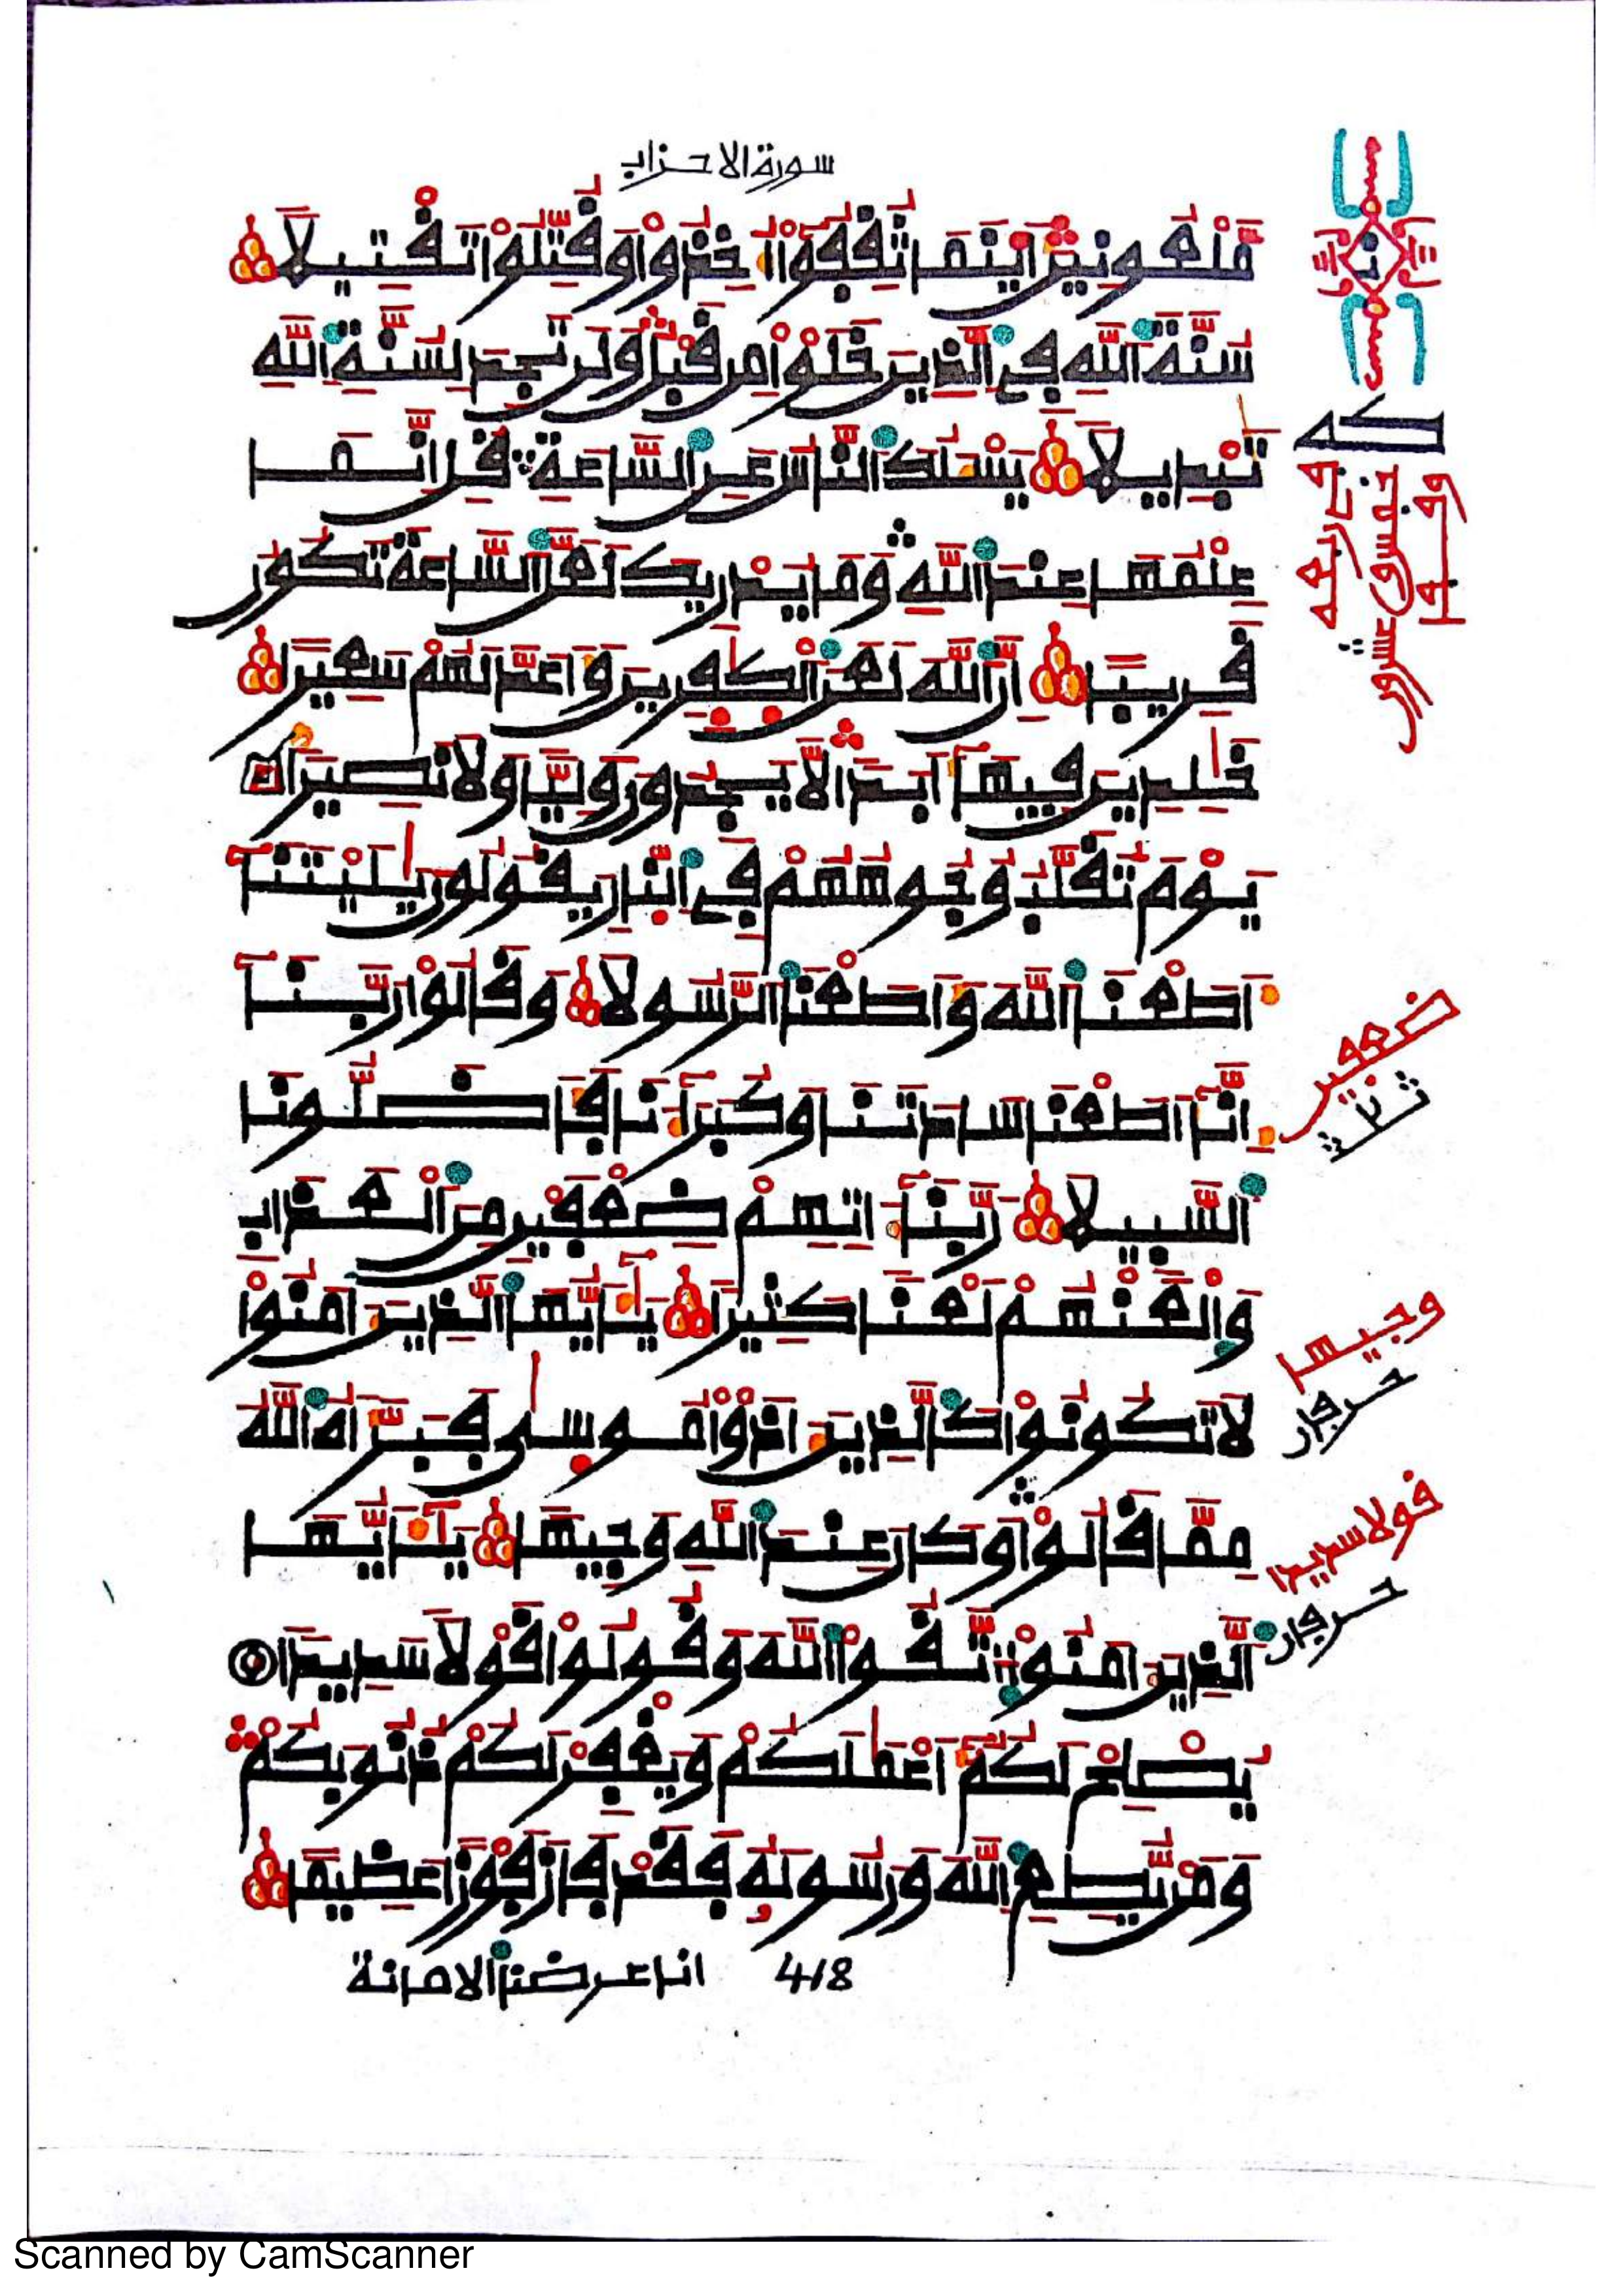 سورة الاحزاب
مَّلْعُونِينَ أَيْنَمَا ثُقِفُوٓاْ أُخِذُواْ وَقُتِّلُواْ تَقْتِيلاً
سُنَّةَ اَللَّهِ فِے اِلذِينَ خَلَوْاْ مِن قَبْلُ وَلَن تَجِدَ لِسُنَّةِ اِللَّهِ
تَبْدِيلاً يَسْـَٔلُكَ اَلنَّاسُ عَنِ اِلسَّاعَةِ قُلِ انَّمَا
عِلْمُهَا عِندَ اَللَّهِ وَمَا يُدْرِيكَ لَعَلَّ اَلسَّاعَةَ تَكُونُ
قَرِيباً إِنَّ اَللَّهَ لَعَنَ اَلْكٰفِرِينَ وَأَعَدَّ لَهُمْ سَعِيراً
خَٰلِدِينَ فِيهَآ أَبَداً لاَّ يَجِدُونَ وَلِيّاً وَلاَ نَصِيراً
يَوْمَ تُقَلَّبُ وُجُوهُهُمْ فِے اِلنَّارِ يَقُولُونَ يَٰلَيْتَنَآ
أَطَعْنَا اَللَّهَ وَأَطَعْنَا اَلرَّسُولاَ وَقَالُواْ رَبَّنَآ
إِنَّآ أَطَعْنَا سَادَتَنَا وَكُبَرَآءَنَا فَأَضَلُّونَا
اَلسَّبِيلاَ رَبَّنَآ ءَاتِهِمْ ضِعْفَيْنِ مِنَ اَلْعَذَابِ
وَالْعَنْهُمْ لَعْناً كَثِيراً يَٰٓأَيُّهَا اَلذِينَ ءَامَنُواْ
لاَ تَكُونُواْ كَالذِينَ ءَاذَوْاْ مُوسىٰ فَبَرَّأَهُ اُللَّهُ
مِمَّا قَالُواْ وَكَانَ عِندَ اَللَّهِ وَجِيهاً يَٰٓأَيُّهَا
اَلذِينَ ءَامَنُواْ اُتَّقُواْ اُللَّهَ وَقُولُواْ قَوْلاً سَدِيداً
يُصْلِحْ لَكُمُۥٓ أَعْمَٰلَكُمْ وَيَغْفِرْ لَكُمْ ذُنُوبَكُمْ
وَمَنْ يُّطِعِ اِللَّهَ وَرَسُولَهُۥ فَقَدْ فَازَ فَوْزاً عَظِيماً
418 انا عرضنا الامانة
ضعفين
ثالث
وجيها
قولا سديدا